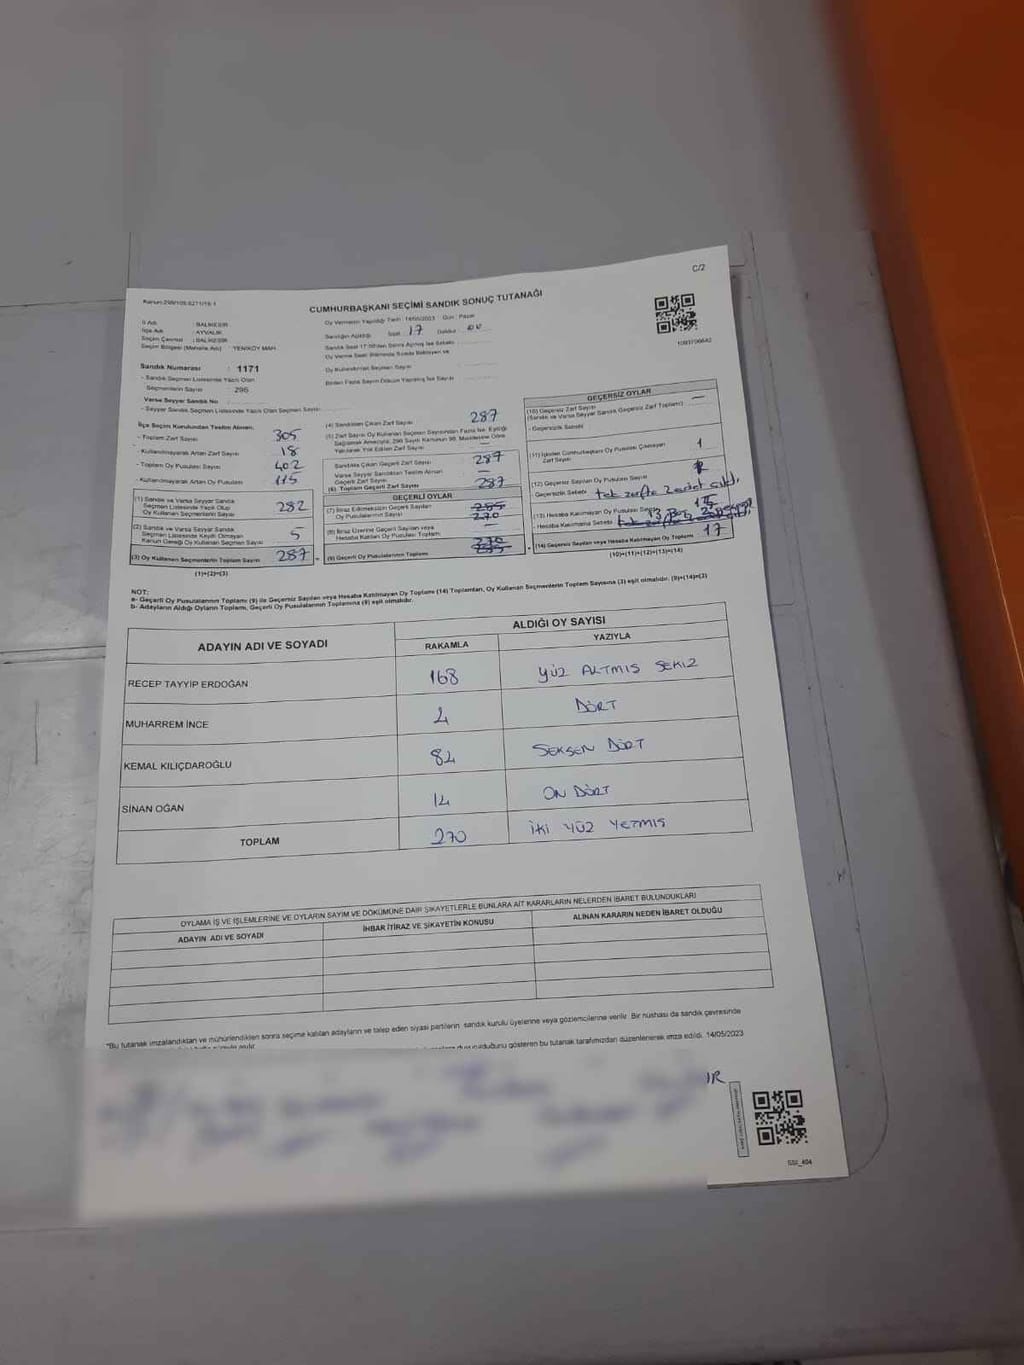 C/2
CUMHURBAŞKANI SEÇİMİ SANDIK SONUÇ TUTANAĞI
İl Adı : BALIKESİR
İlçe Adı : AYVALIK
Seçim Çevresi : BALIKESİR
Seçim Bölgesi (Mahalle Adı) : YENİKÖY MAH.
Oy Vermenin Yapıldığı Tarih : 14/05/2023 Gün : Pazar
Sandığın Açıldığı Saat 17 Dakika 00
Sandık Numarası : 1171
- Sandık Seçmen Listesinde Yazılı Olan
Seçmenlerin Sayısı : 296
Varsa Seyyar Sandık No
- Seyyar Sandık Seçmen Listesinde Yazılı Olan Seçmen Sayısı
İlçe Seçim Kurulundan Teslim Alınan;
- Toplam Zarf Sayısı 305
- Kullanılmayarak Artan Zarf Sayısı 18
- Toplam Oy Pusulası Sayısı 402
- Kullanılmayarak Artan Oy Pusulası 115
(1) Sandık ve Varsa Seyyar Sandık
Seçmen Listesinde Yazılı Olup
Oy Kullanan Seçmenlerin Sayısı 282
(2) Sandık ve Varsa Seyyar Sandık
Seçmen Listesinde Kaydı Olmayan
Kanun Gereği Oy Kullanan Seçmen Sayısı 5
(3) Oy Kullanan Seçmenlerin Toplam Sayısı 287
(1)+(2)=(3)
(4) Sandıktan Çıkan Zarf Sayısı 287
Sandıkta Çıkan Geçerli Zarf Sayısı 287
Varsa Seyyar Sandıktan Teslim Alınan
Geçerli Zarf Sayısı —
(6) Toplam Geçerli Zarf Sayısı 287
GEÇERLİ OYLAR
(7) İtiraz Edilmeksizin Geçerli Sayılan
Oy Pusulalarının Sayısı 270
(8) İtiraz Üzerine Geçerli Sayılan veya
Hesaba Katılan Oy Pusulası Toplamı —
(9) Geçerli Oy Pusulalarının Toplamı 270
GEÇERSİZ OYLAR
(10) Geçersiz Zarf Sayısı —
(Sandık ve Varsa Seyyar Sandık Geçersiz Zarf Toplamı)
- Geçersizlik Sebebi
(11) İçinden Cumhurbaşkanı Oy Pusulası Çıkmayan
Zarf Sayısı 1
(12) Geçersiz Sayılan Oy Pusulası Sayısı
- Geçersizlik Sebebi
(13) Hesaba Katılmayan Oy Pusulası Sayısı
- Hesaba Katılmama Sebebi
(14) Geçersiz Sayılan veya Hesaba Katılmayan Oy Toplamı 17
(10)+(11)+(12)+(13)=(14)
NOT:
a- Geçerli Oy Pusulalarının Toplamı (9) ile Geçersiz Sayılan veya Hesaba Katılmayan Oy Toplamı (14) Toplamları, Oy Kullanan Seçmenlerin Toplam Sayısına (3) eşit olmalıdır. (9)+(14)=(3)
b- Adayların Aldığı Oyların Toplamı, Geçerli Oy Pusulalarının Toplamına (9) eşit olmalıdır.
ADAYIN ADI VE SOYADI ALDIĞI OY SAYISI
RAKAMLA YAZIYLA
RECEP TAYYİP ERDOĞAN 168 YÜZ ALTMIS SEKIZ
MUHARREM İNCE 4 DÖRT
KEMAL KILIÇDAROĞLU 84 SEKSEN DÖRT
SİNAN OĞAN 14 ON DÖRT
TOPLAM 270 İKİ YÜZ YETMIS
OYLAMA İŞ VE İŞLEMLERİNE VE OYLARIN SAYIM VE DÖKÜMÜNE DAİR ŞİKAYETLERLE BUNLARA AİT KARARLARIN NELERDEN İBARET BULUNDUKLARI
ADAYIN ADI VE SOYADI İHBAR İTİRAZ VE ŞİKAYETİN KONUSU ALINAN KARARIN NEDEN İBARET OLDUĞU
"Bu tutanak imzalandıktan ve mühürlendikten sonra seçime katılan adayların ve talep eden siyasi partilerin sandık kurulu üyelerine veya gözlemcilerine verilir. Bir nüshası da sandık çevresinde
gösteren bu tutanak tarafımızdan düzenlenerek imza edildi. 14/05/2023
SSI_404